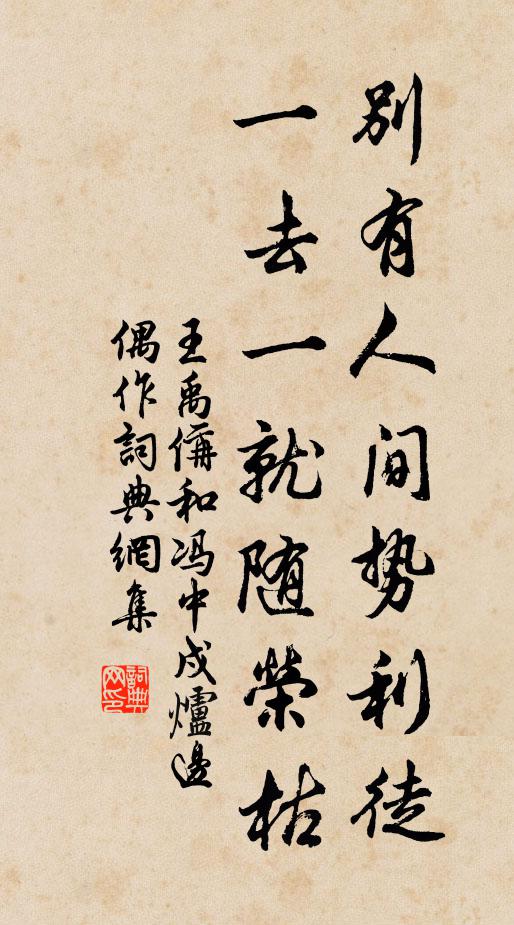 别有人间势利徒
一去一就随荣枯
王禹偁和冯中戍爐邊
偶作詞典網集
詞典網印